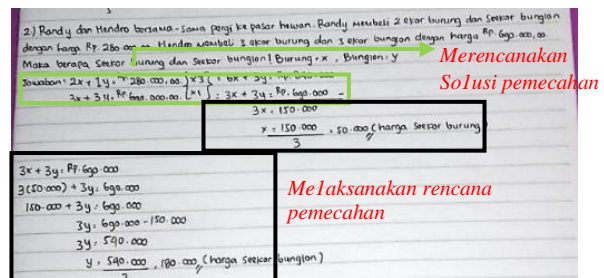 2.) Randy dan Hendro bersama-sama pergi ke pasar hewan. Randy membeli 2 ekor burung dan seekor bunglon
dengan harga Rp. 280.000,00 Hendro membeli 3 ekor burung dan 3 ekor bunglon dengan harga Rp. 690.000,00
Maka berapa seekor burung dan seekor bunglon! Burung = x , Bunglon = y
Merencanakan
Solusi pemecahan
Jawaban: 2x + 1y = 280.000,00 | x3 | = 6x + 3y = Rp.
3x + 3y = Rp 690.000.00 | x1 | = 3x + 3y = Rp. 690.000 -
3x = 150.000
x = 150.000 = 50.000 (harga seekor burung
3
3x + 3y = Rp. 690.000
3(50.000) + 3y = 690.000
150.000 + 3y = 690.000
3y = 690.000 - 150.000
3y = 540.000
y = 540.000 = 180.000 (harga seekor bunglon)
3
Melaksanakan rencana
pemecahan